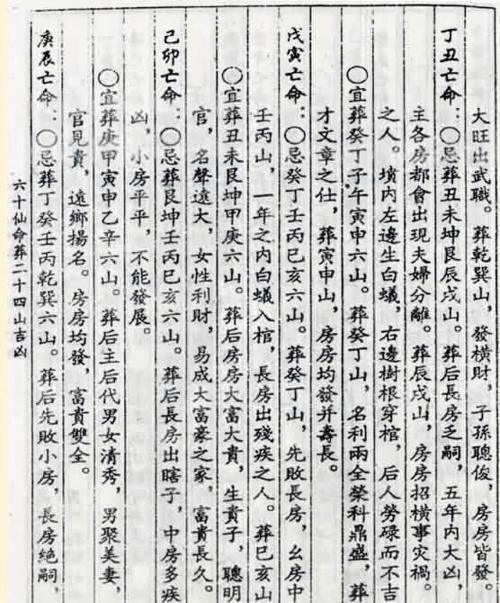 大旺出武職。葬乾巽山，發橫財，子孫聰俊，房房皆發。
丁丑亡命：○忌葬丑未坤艮辰戌山。葬后長房乏嗣，五年内大凶，
主各房都會出現夫婦分離。葬辰戌山，房房招橫事灾禍。
之人。墳内左邊生白蟻，右邊樹根穿棺，后人勞碌而不吉
○宜葬癸丁子午寅申六山。葬癸丁山，名利兩全榮科鼎盛，葬
才文章之仕，葬寅申山，房房均發并壽長。
戊寅亡命：○忌癸丁壬丙巳亥六山。葬癸丁山，先敗長房，幺房中
壬丙山，一年之内白蟻入棺，長房出殘疾之人。葬巳亥山
○宜葬丑未艮坤甲庚六山。葬后房房大富大貴，生貴子，聰明
官，名聲遠大，女性利財，易成大富豪之家，富貴長久。
己卯亡命：○忌葬艮坤壬丙巳亥六山。葬后長房出瞎子，中房多疾
凶，小房平平，不能發展。
○宜葬庚甲寅申乙辛六山。葬后主后代男女清秀，男聚美妻，
官見貴，遠鄉揚名。房房均發，富貴雙全。
庚辰亡命：○忌葬丁癸壬丙乾巽六山。葬后先敗小房，長房絕嗣，
六十仙命葬二十四山吉凶